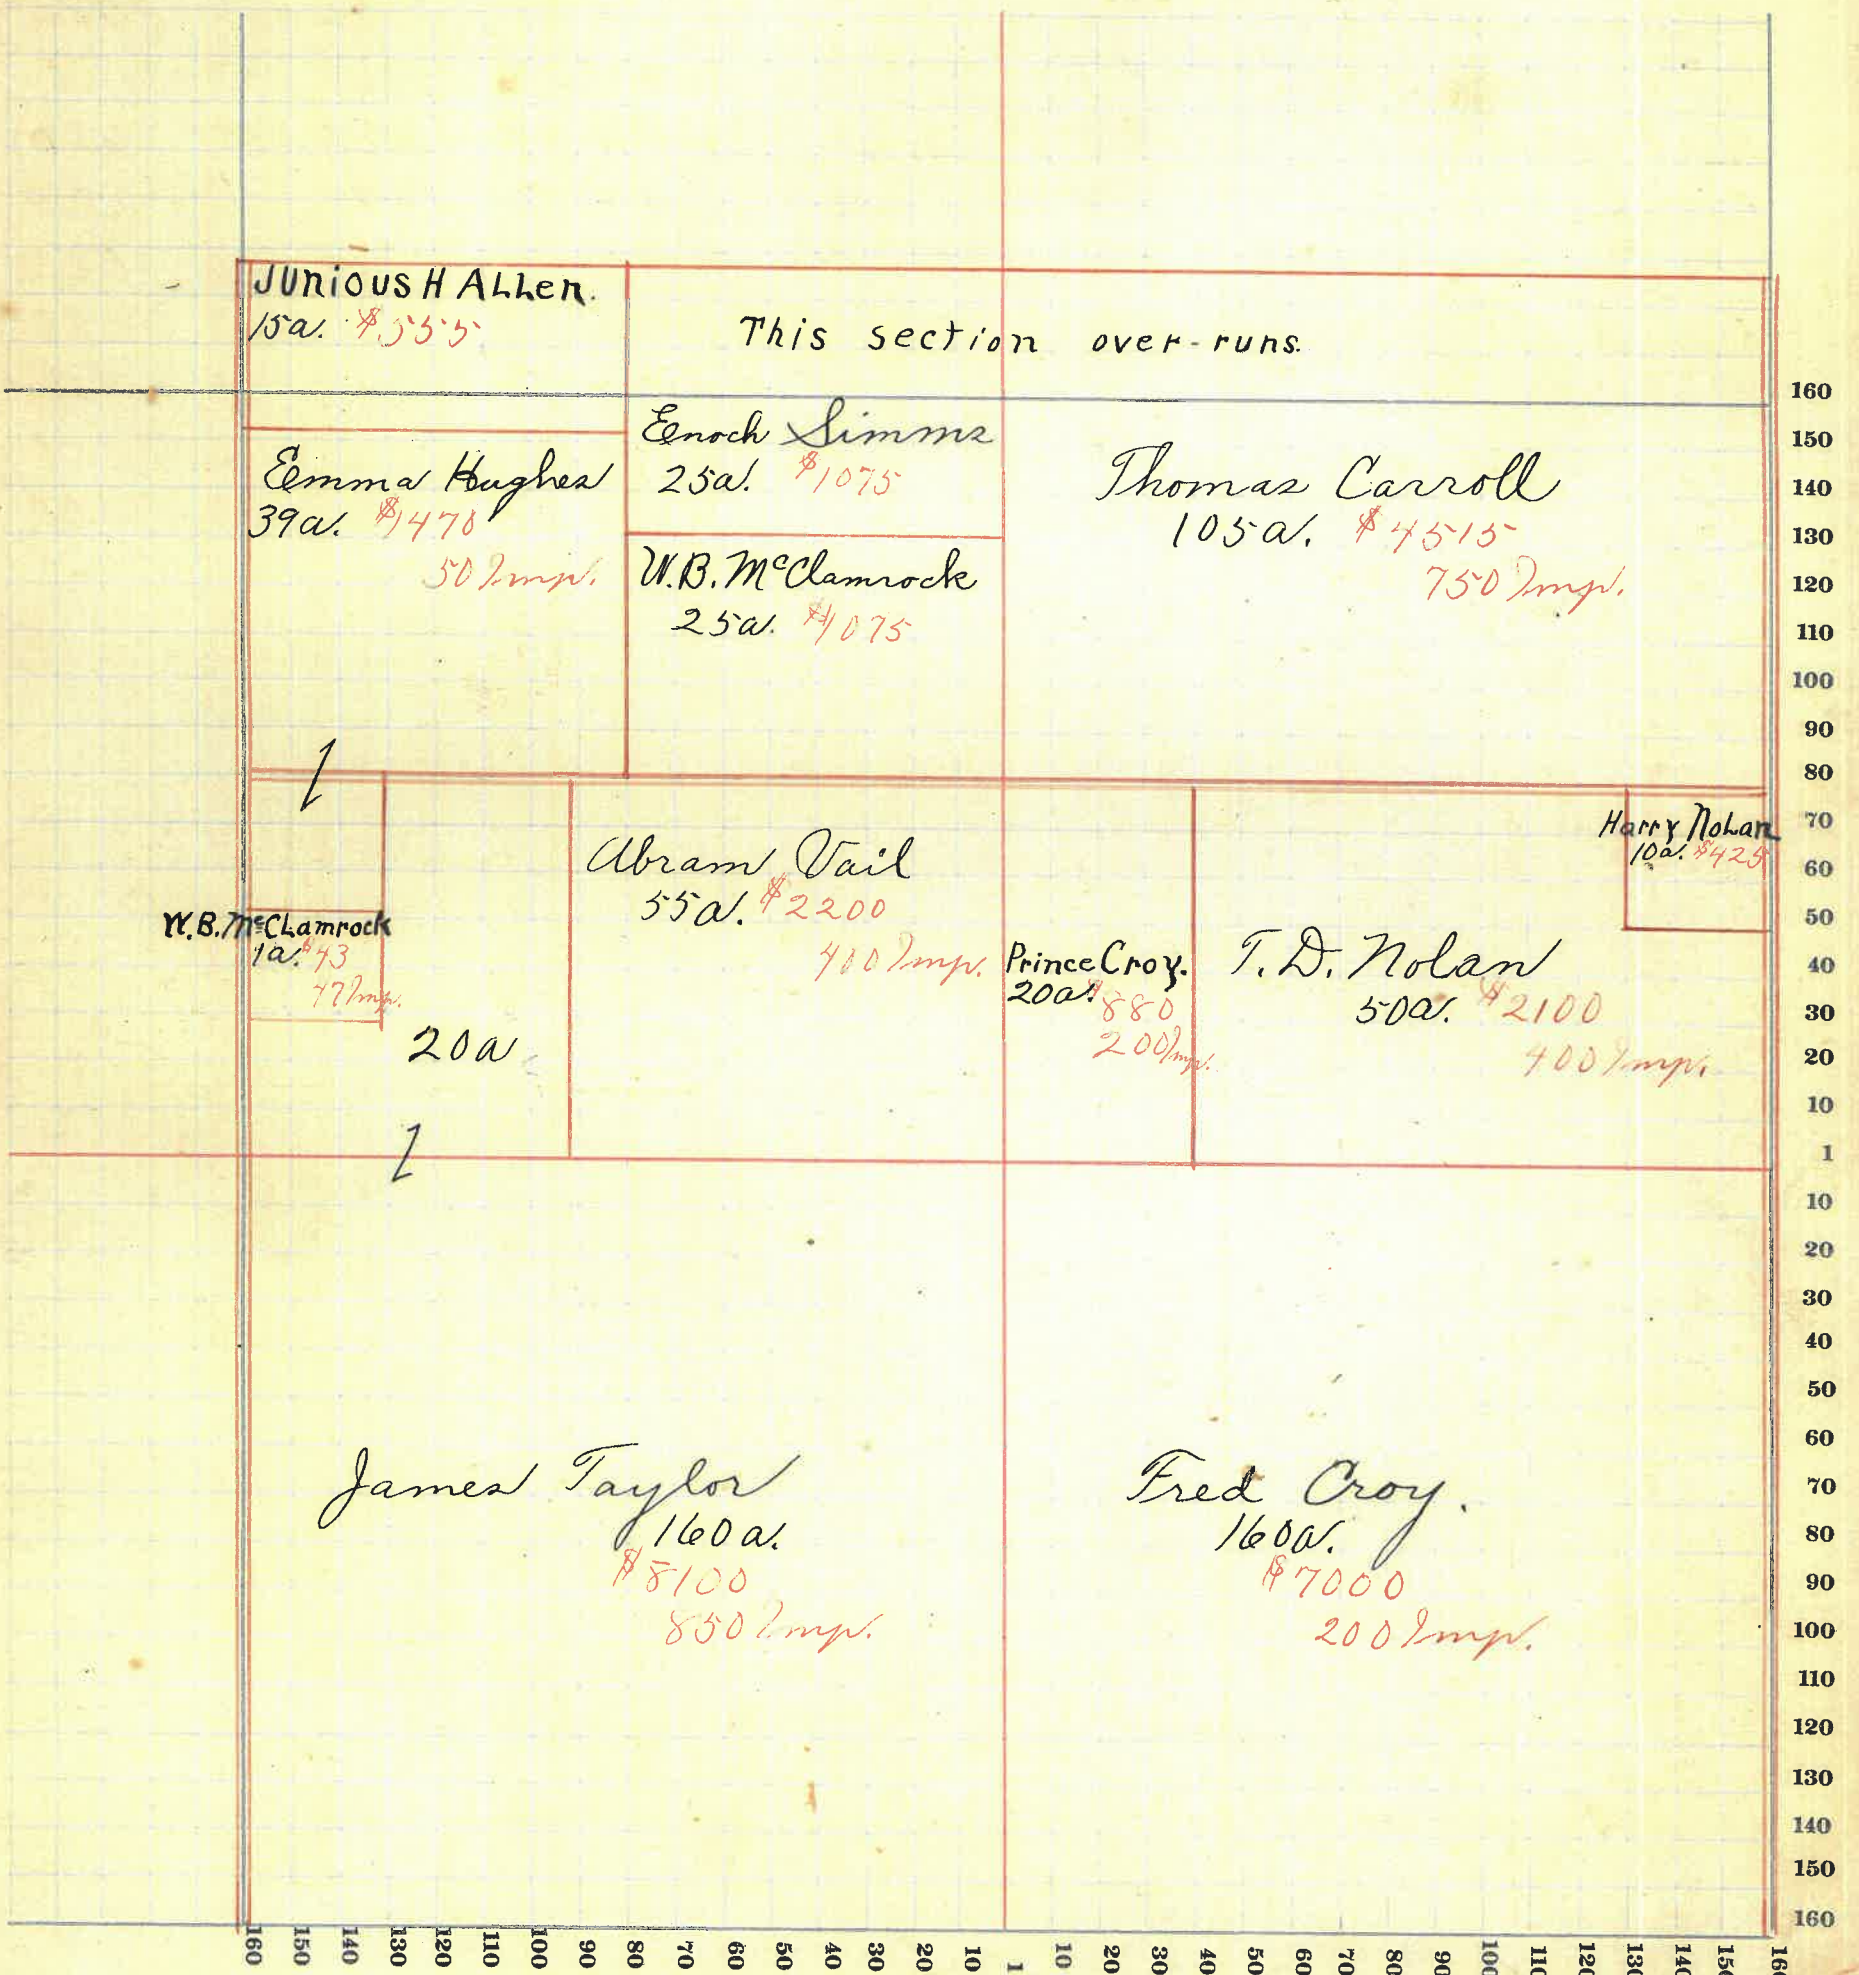 JUNIOUS H ALLEN.
15a. $555
This section over-runs.
Emma Hughes
39a. $1470
50 Imp.
Enoch Simms
25a. $1075
W.B. McClamrock
25a. $1075
Thomas Carroll
105a. $4515
750 Imp.
W.B. McClamrock
1a. $43
47 Imp.
20a
Abram Vail
55a. $2200
400 Imp.
Prince Croy.
20a. $880
200 Imp.
T.D. Nolan
50a. $2100
400 Imp.
Harry Nolan
10a. $425
James Taylor
160a.
$8100
850 Imp.
Fred Croy.
160a.
$7000
200 Imp.
160
150
140
130
120
110
100
90
80
70
60
50
40
30
20
10
1
10
20
30
40
50
60
70
80
90
100
110
120
130
140
150
160
160 150 140 130 120 110 100 90 80 70 60 50 40 30 20 10 1 10 20 30 40 50 60 70 80 90 100 110 120 130 140 150 160